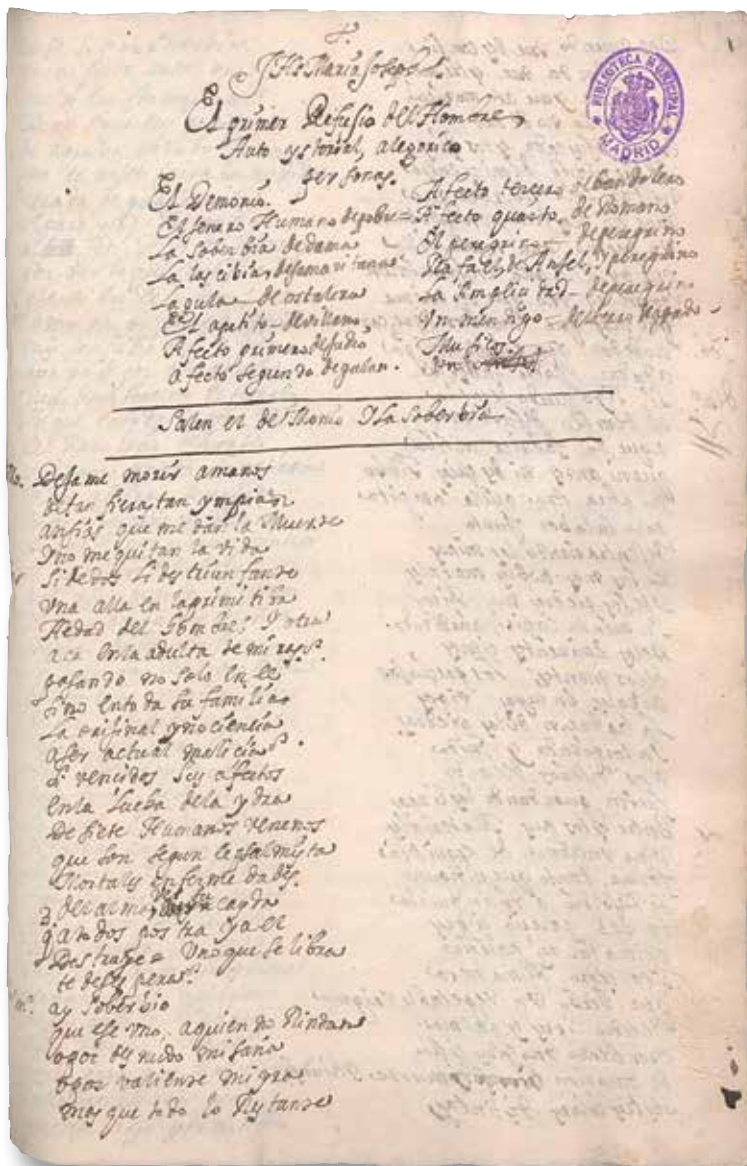 JHs Maria Joseph
El primer Refujio del Hombre
Auto ystorial, alegorico
personas.
El Demonio.
El jenero Humano de pobre
La soberbia de dama
La lascibia, de samaritana
La gula de ostalera
El apetito de villano,
Afecto primero de judio
afecto segundo de galan.
Afecto terçero de bandolero
Afecto quarto, de Romano
El peregrino de peregrino
Rafael, de Anjel, y peregrino
La simplicidad de peregrino
Un mendigo
Musicos.
BIBLIOTECA MUNICIPAL
MADRID
Salen el demonio y La soberbia
Dejame morir amanos
de tan fieras tan ympias
ansias que me dan la muerte
y no me quitan la vida
si de dos lides triunfante
una alla en la primitiba
Hedad del Hombre, y otra
aca en la adulta de mi
pasando no solo en el
sino en toda su familia
La orijinal ynocencia
a ser actual malicia
vencidos sus afectos
en la lucha de la ydra
De siete Humanos venenos
que son segun el salmista
Mortales enfermedades
del alma
a todos postra y a el
Destruye = Uno que se libra
te desespera?
ay soberbia
que ese uno, a quien no Rindan
o por desnudo mi saña
o por valiente mi yra
mas que todo lo Restante